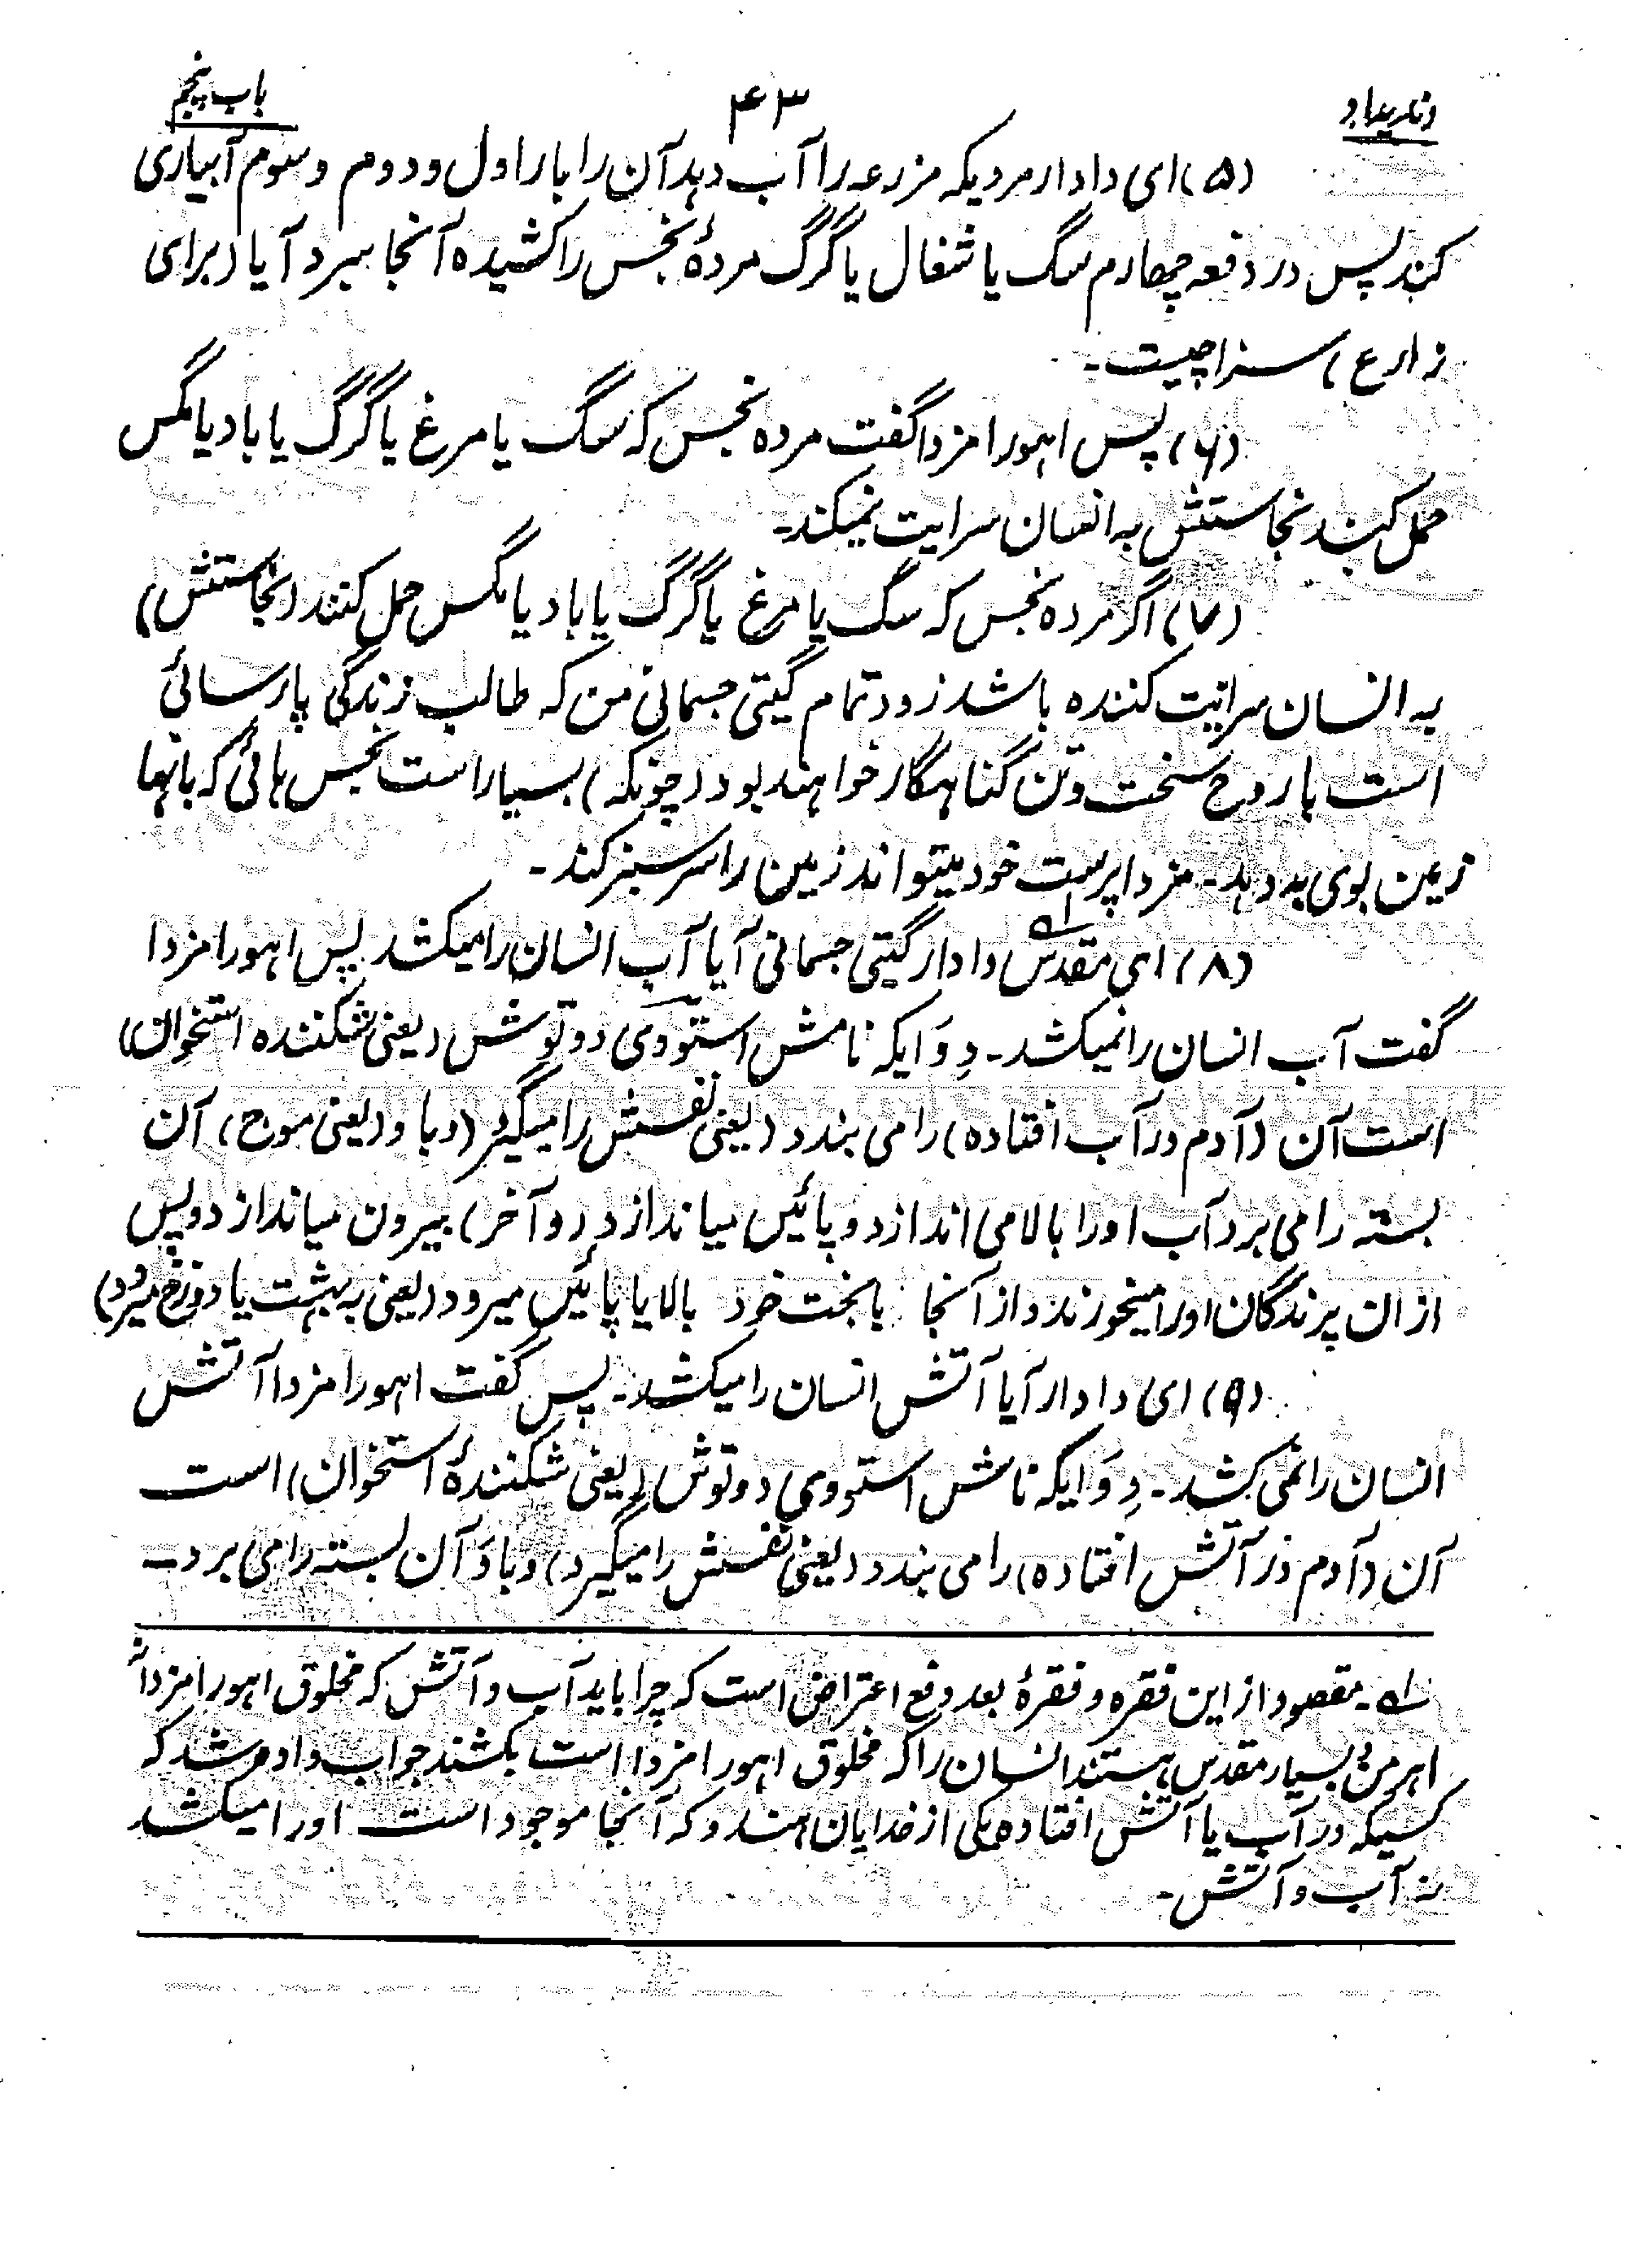 وندیداد
۴۳
باب پنجم
(۵) ای دادار مردیکه مزرعه را آب دهد آن را بار اول و دوم و سوم آبیاری
کند پس در دفعه چهارم سگ یا شغال یا گرگ مردهٔ نجس را کشیده آنجا ببرد آیا (برای
زارع) سزا چیست۔
(۶) پس اهورا مزدا گفت مرده نجس که سگ یا مرغ یا گرگ یا باد یا مگس
حمل کنند نجاستش به انسان سرایت نمیکند۔
(۷) اگر مرده نجس که سگ یا مرغ یا گرگ یا باد یا مگس حمل کنند (نجاستش)
به انسان سرایت کننده باشد زود تمام گیتی جسمانی من که طالب زندگی پارسائی
است با روح سخت و تن گناهگار خواهند بود (چونکه) بسیار است نجس هائی که بانها
زمین بوی به دهد۔ مزدا پرست خود میتواند زمین را سرسبز کند۔
(۸) ای مقدس ؎۱ دادار گیتی جسمانی آیا آب انسان را میکشد پس اهورا مزدا
گفت آب انسان را نمیکشد۔ دِوَ ایکه نامش استوَوی دوتوش (یعنی شکننده استخوان)
است آن (آدم در آب افتاده) را می بندد (یعنی نفسش را میگیرد) (و باد (یعنی موج) آن
بسته را می برد آب او را بالا می اندازد و پائین میاندازد (و آخر) بیرون میاندازد و پس
از ان پرندگان او را میخورند و از آنجا با بخت خود بالا یا پائین میرود (یعنی به بهشت یا دوزخ میرود)
(۹) ای دادار آیا آتش انسان را میکشد۔ پس گفت اهورا مزدا آتش
انسان را نمی کشد۔ دِوَ ایکه نامش استوَوی دوتوش (یعنی شکنندهٔ استخوان) است
آن (آدم در آتش افتاده) را می بندد (یعنی نفسش را میگیرد) و باد آن بسته را می برد۔
؎۱۔ مقصود از این فقره و فقرهٔ بعد دفع اعتراض است که چرا باید آب و آتش که مخلوق اهورا مزدا
بسیار مقدس هستند انسان را که مخلوق اهورا مزدا است بکشند جواب داده شد که
کسیکه در آب یا آتش افتاده یکی از خدایان هنود که آنجا موجود است او را میکشد
نه آب و آتش۔